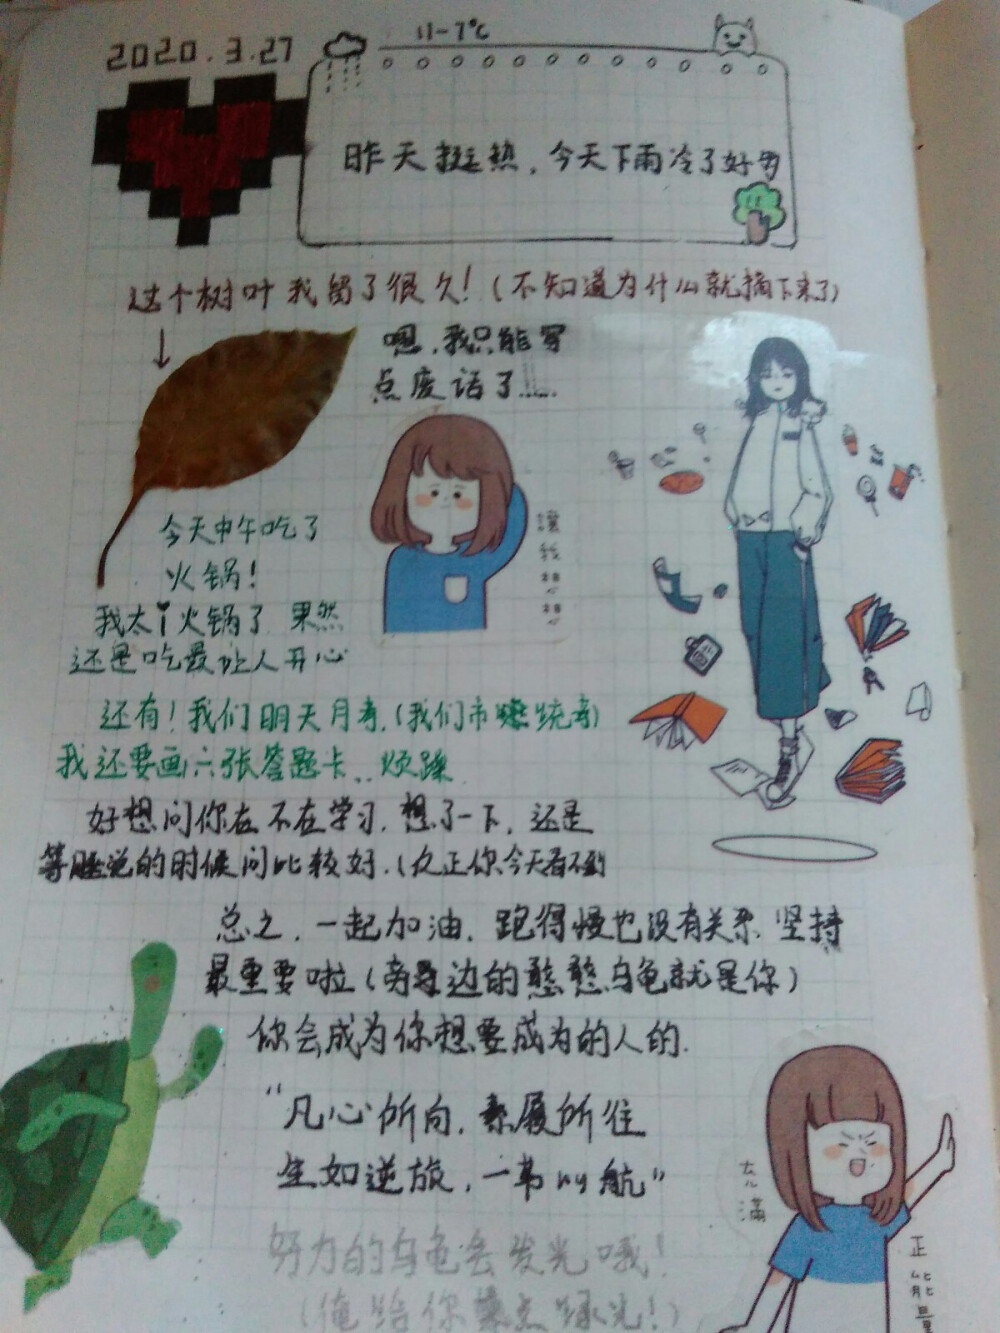 2020.3.27
11-7℃
昨天挺热，今天下雨冷了好多
这个树叶我留了很久！(不知道为什么就摘下来了)
嗯，我只能写
点废话了……
讓我想想
今天中午吃了
火锅！
我太火锅了 果然
还是吃最让人开心
还有！我们明天月考.(我们市统考)
我还要画六张答题卡..烦躁
好想问你在不在学习，想了一下，还是
等说的时候问比较好.(反正你今天看不到
总之，一起加油，跑得慢也没有关系 坚持
最重要啦(旁边的憨憨乌龟就是你)
你会成为你想要成为的人的.
"凡心所向，素履所往
生如逆旅，一苇以航"
充滿
正能量
努力的乌龟会发光哦！
(俺给你点绿光！)